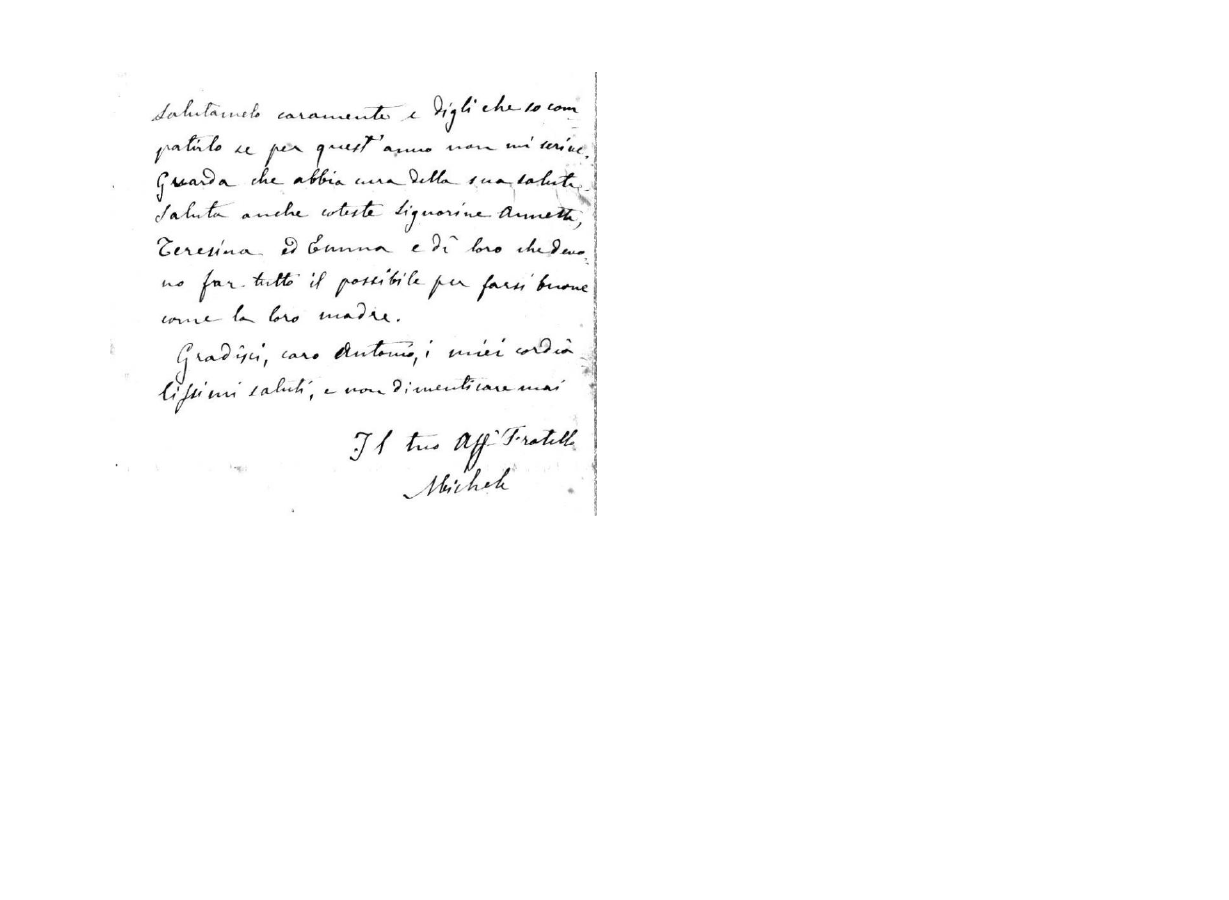 Salutamelo caramente e digli che so com
patirlo se per quest'anno non mi scrive.
Guarda che abbia cura della sua salute.
Saluta anche coteste Signorine Annetta,
Teresina ed Emma e dì loro che devo-
no far tutto il possibile per farsi buone
come la loro madre.
Gradisci, caro Antonio, i miei cordia-
lissimi saluti, e non dimenticare mai
Il tuo Aff. Fratello
Michele